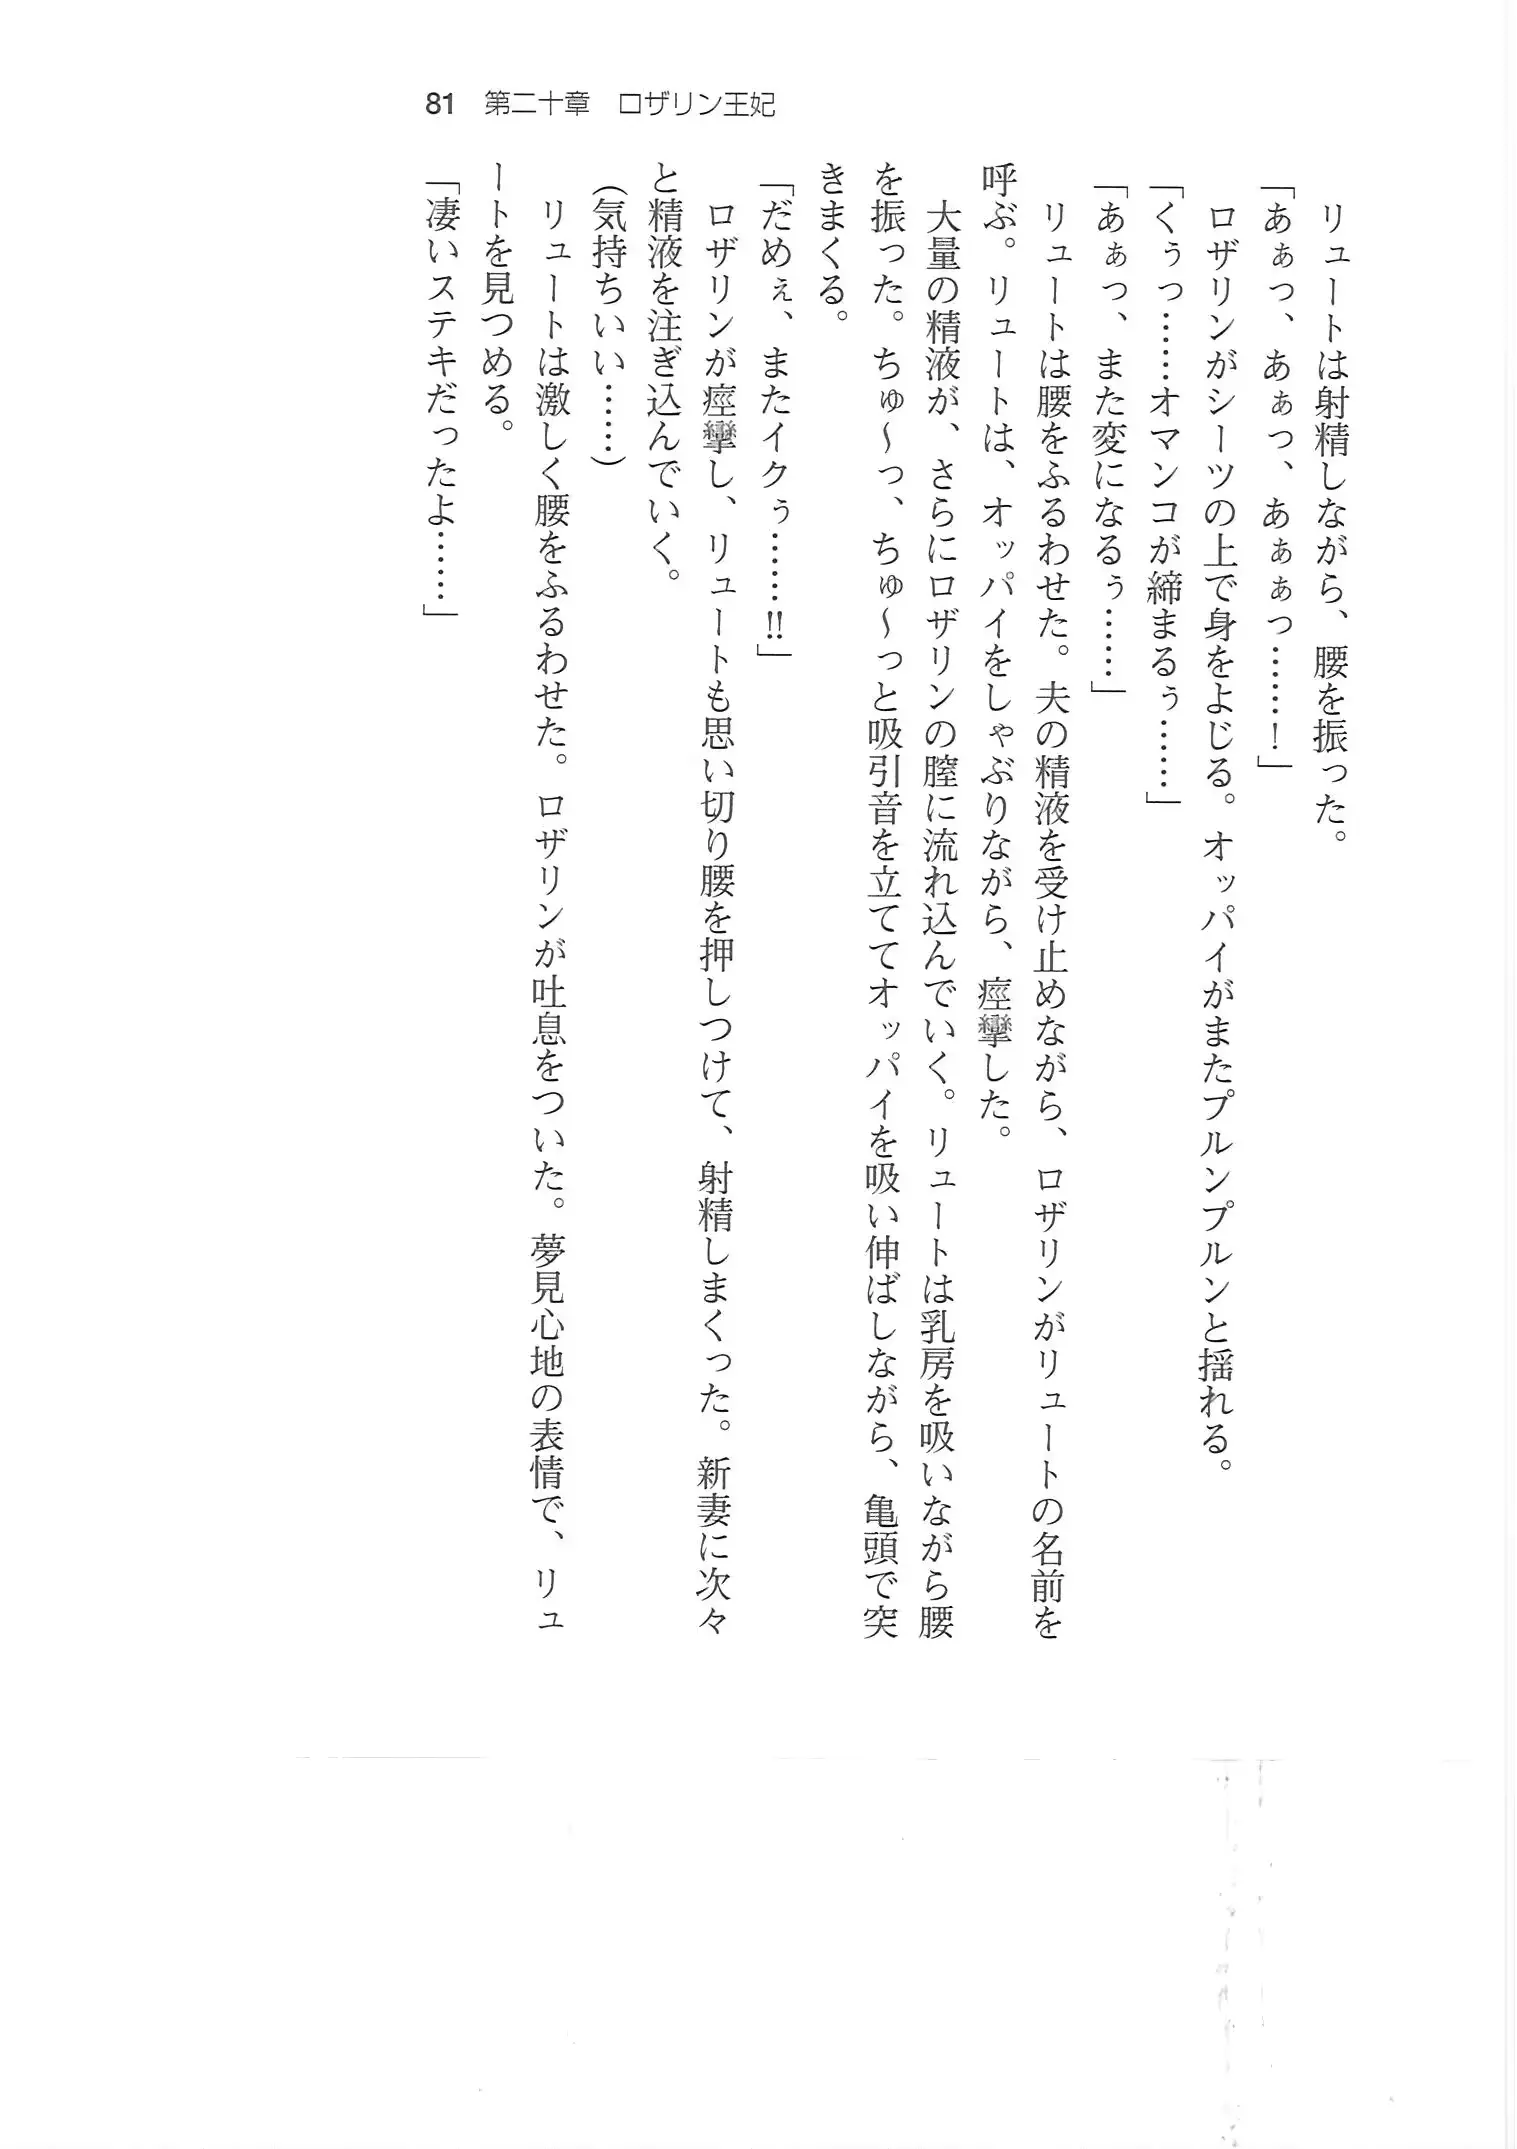 81 第二十章 ロザリン王妃
リュートは射精しながら、腰を振った。
「あぁっ、あぁっ、あぁぁっ……！」
ロザリンがシーツの上で身をよじる。オッパイがまたプルンプルンと揺れる。
「くぅっ……オマンコが締まるぅ……」
「あぁっ、また変になるぅ……」
リュートは腰をふるわせた。夫の精液を受け止めながら、ロザリンがリュートの名前を
呼ぶ。リュートは、オッパイをしゃぶりながら、痙攣した。
大量の精液が、さらにロザリンの膣に流れ込んでいく。リュートは乳房を吸いながら腰
を振った。ちゅ～っ、ちゅ～っと吸引音を立ててオッパイを吸い伸ばしながら、亀頭で突
きまくる。
「だめぇ、またイクぅ……!!」
ロザリンが痙攣し、リュートも思い切り腰を押しつけて、射精しまくった。新妻に次々
と精液を注ぎ込んでいく。
（気持ちいい……）
リュートは激しく腰をふるわせた。ロザリンが吐息をついた。夢見心地の表情で、リュ
ートを見つめる。
「凄いステキだったよ……」